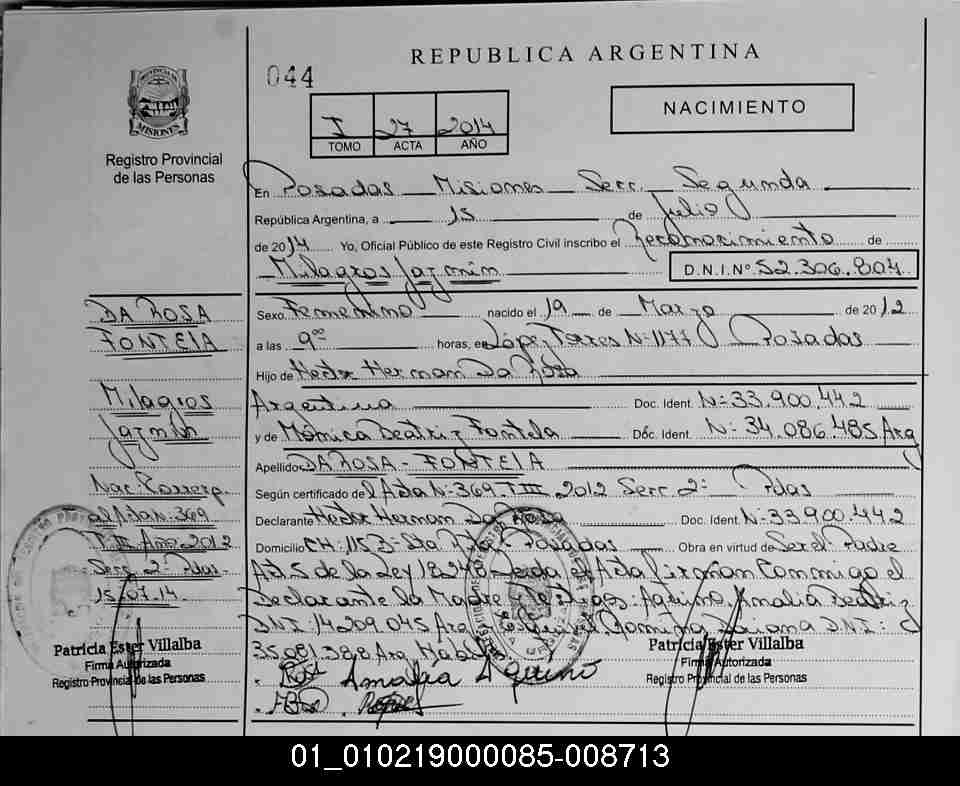 REPUBLICA ARGENTINA
044
NACIMIENTO
I 27 2014
TOMO ACTA AÑO
PROVINCIA DE
MISIONES
Registro Provincial
de las Personas
En Posadas Misiones Secc. Segunda
República Argentina, a 15 de Julio
de 2014 Yo, Oficial Público de este Registro Civil inscribo el Reconocimiento de
Milagros Jazmín D.N.I.Nº 52.306.804
Sexo Femenino nacido el 19 de Marzo de 2012
a las 9 horas, en López Torres Nº 1177 Posadas
Hijo de Hector Hernan Da Rosa
Argentina Doc. Ident. Nº 33.900.442
y de Mónica Beatriz Fontela Doc. Ident. Nº 34.086.485 Arg
Apellidos DA ROSA - FONTELA
Según certificado de el Acta Nº 369 T III 2012 Secc 2º Pdas
Declarante Hector Hernan Da Rosa Doc. Ident. Nº 33.900.442
Domicilio CH. 115 Bº Sta Rita Posadas Obra en virtud de Ser el Padre
de la Ley Acta Firman Conmigo el
Declarante la Madre y Aquino Amalia Beatriz
DNI 14209045 Arg Romina D.N.I:
35.081.388 Arg
Amalia Aquino
DA ROSA
FONTELA
Milagros
Jazmín
Nac.
al Acta Nº 369
T III Año 2012
Secc 2º Pdas-
15.07.14
Patricia Ester Villalba
Firma Autorizada
Registro Provincial de las Personas
Patricia Ester Villalba
Firma Autorizada
Registro Provincial de las Personas
01_010219000085-008713